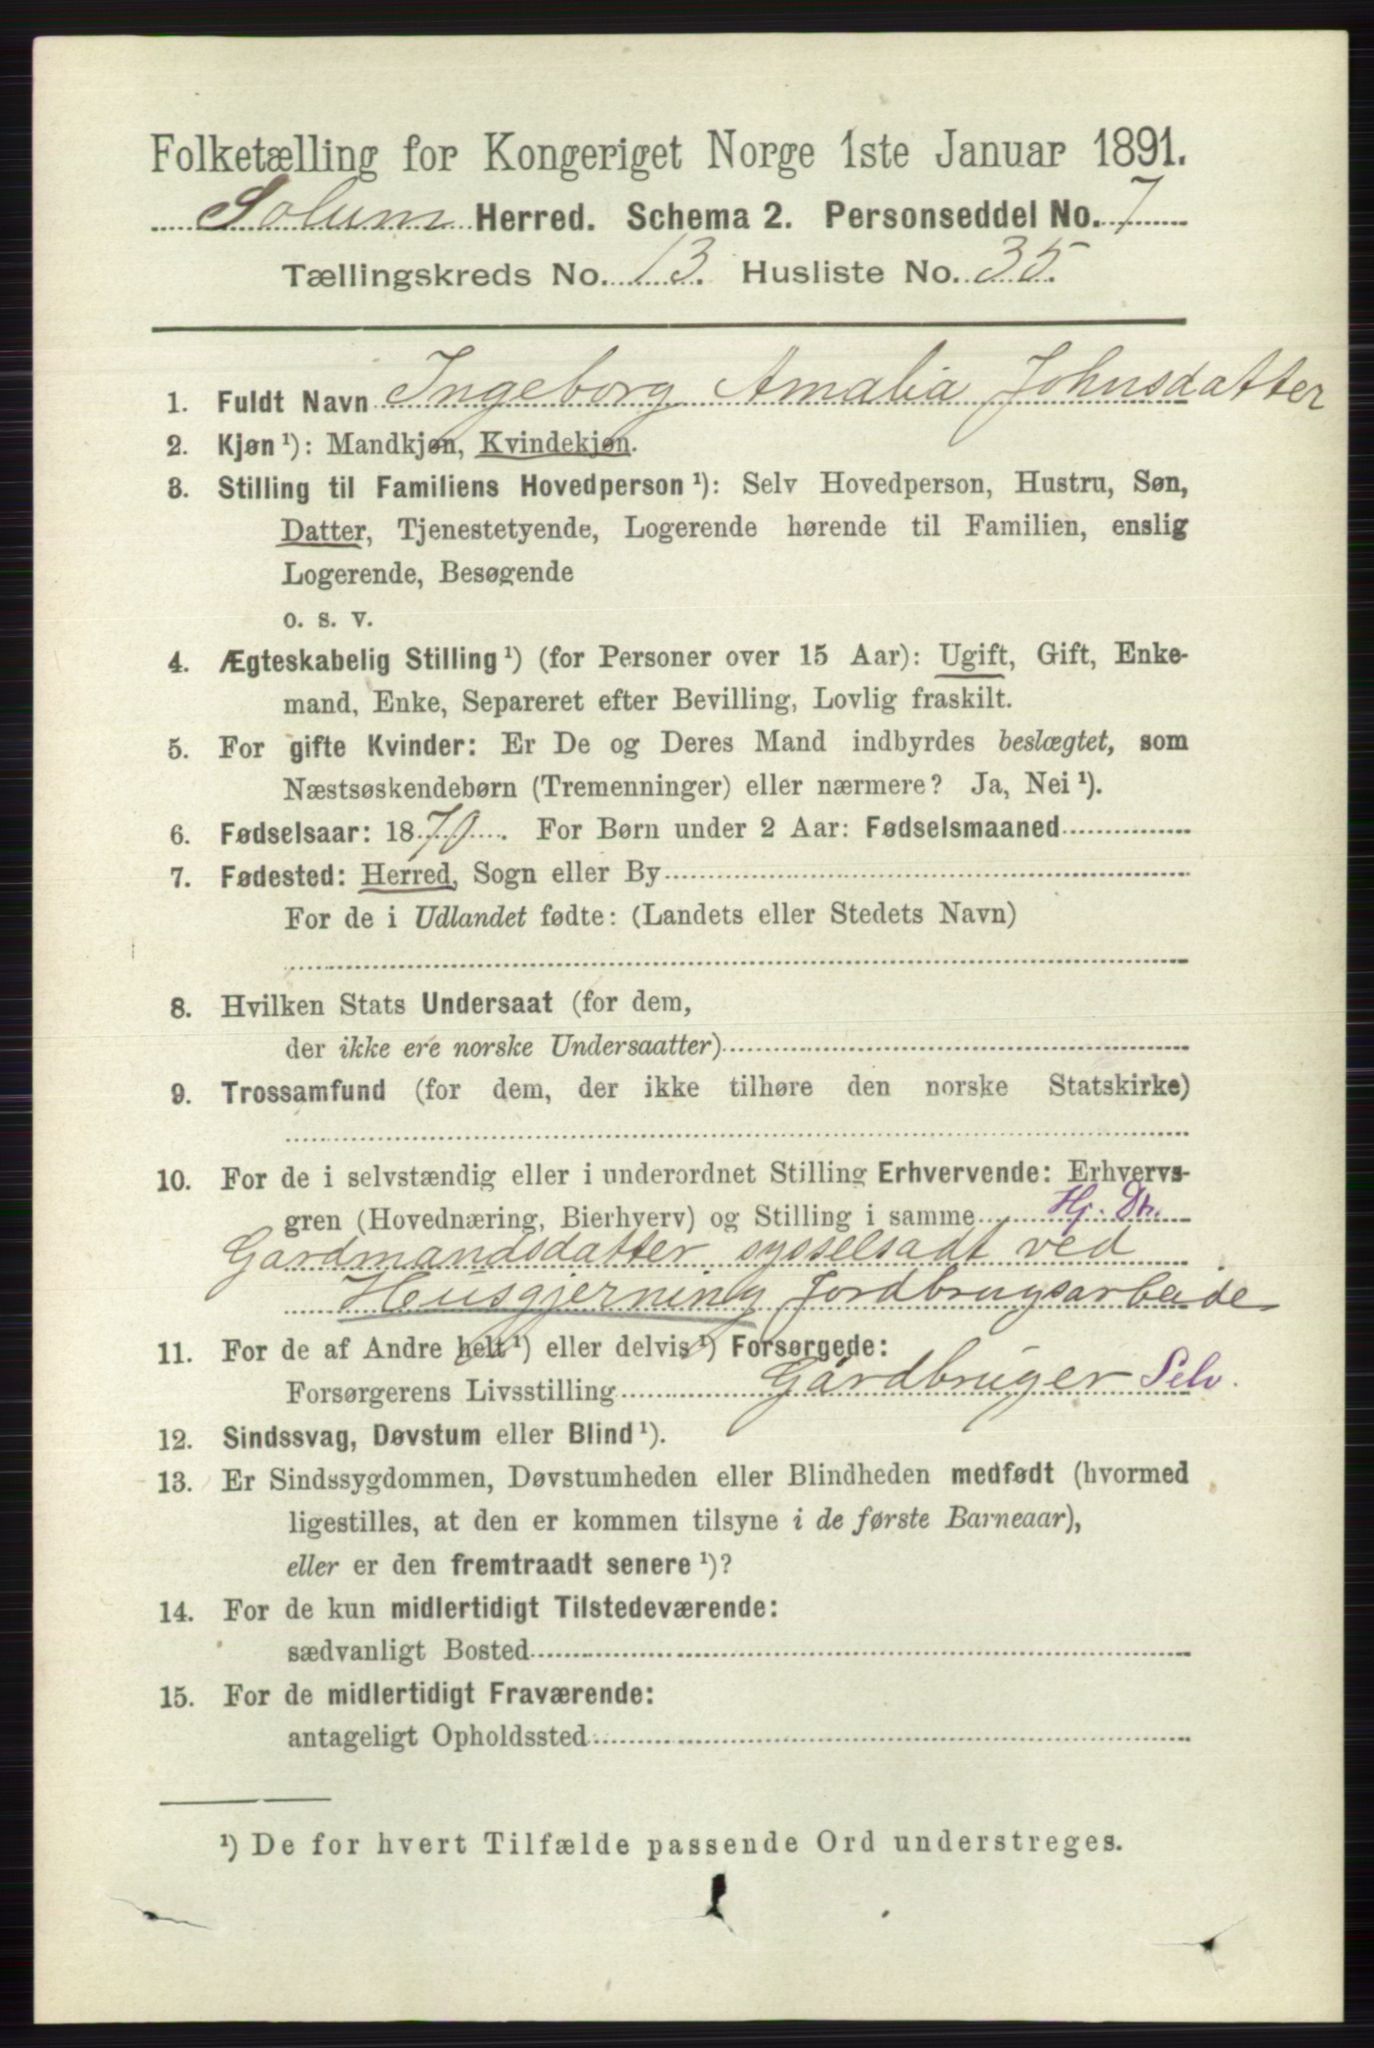 Folketælling for Kongeriget Norge 1ste Januar 1891.
Solum Herred. Schema 2. Personseddel No. 7
Tællingskreds No. 13. Husliste No. 35.
1. Fuldt Navn Ingeborg Amalia Johnsdatter
2. Kjøn¹): Mandkjøn, Kvindekjøn.
3. Stilling til Familiens Hovedperson¹): Selv Hovedperson, Hustru, Søn,
Datter, Tjenestetyende, Logerende hørende til Familien, enslig
Logerende, Besøgende
o. s. v.
4. Ægteskabelig Stilling¹) (for Personer over 15 Aar): Ugift, Gift, Enke-
mand, Enke, Separeret efter Bevilling, Lovlig fraskilt.
5. For gifte Kvinder: Er De og Deres Mand indbyrdes beslægtet, som
Næstsøskendebørn (Tremenninger) eller nærmere? Ja, Nei¹).
6. Fødselsaar: 1870. For Børn under 2 Aar: Fødselsmaaned
7. Fødested: Herred, Sogn eller By
For de i Udlandet fødte: (Landets eller Stedets Navn)
8. Hvilken Stats Undersaat (for dem,
der ikke ere norske Undersaatter)
9. Trossamfund (for dem, der ikke tilhøre den norske Statskirke)
10. For de i selvstændig eller i underordnet Stilling Erhvervende: Erhvervs-
gren (Hovednæring, Bierhverv) og Stilling i samme Hj. Dtr.
Gardmandsdatter sysselsadt ved
Husgjerning Jordbrugsarbeide
11. For de af Andre helt¹) eller delvis¹) Forsørgede:
Forsørgerens Livsstilling Gårdbruger Selv.
12. Sindssvag, Døvstum eller Blind¹).
13. Er Sindssygdommen, Døvstumheden eller Blindheden medfødt (hvormed
ligestilles, at den er kommen tilsyne i de første Barneaar),
eller er den fremtraadt senere¹)?
14. For de kun midlertidigt Tilstedeværende:
sædvanligt Bosted
15. For de midlertidigt Fraværende:
antageligt Opholdssted
¹) De for hvert Tilfælde passende Ord understreges.